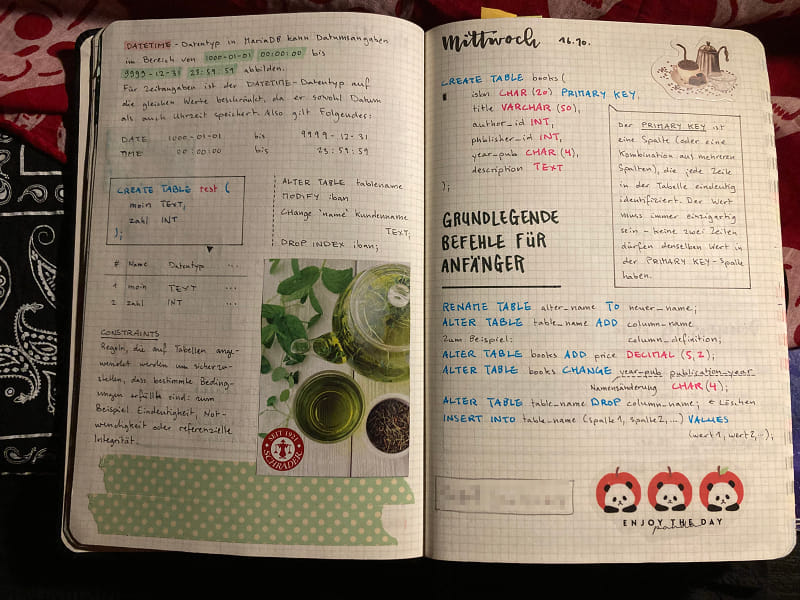 DATETIME - Datentyp in MariaDB kann Datumsangaben
im Bereich von 1000-01-01 00:00:00 bis
9999-12-31 23:59:59 abbilden.
Für Zeitangaben ist der DATETIME-Datentyp auf
die gleichen Werte beschränkt, da er sowohl Datum
als auch Uhrzeit speichert. Also gilt Folgendes:
DATE 1000-01-01 bis 9999-12-31
TIME 00:00:00 bis 23:59:59
CREATE TABLE test (
moin TEXT,
zahl INT
);
ALTER TABLE tablename
MODIFY iban
Change 'name' Kundenname
TEXT;
DROP INDEX iban;
# Name Datentyp ...
1 moin TEXT ...
2 zahl INT ...
CONSTRAINTS
Regeln, die auf Tabellen ange-
wendet werden um sicherzu-
stellen, dass bestimmte Bedin-
gungen erfüllt sind: zum
Beispiel Eindeutigkeit, Not-
wendigkeit oder referenzielle
Integrität.
SEIT 1921
SCHRADER
Mittwoch 16.10.
CREATE TABLE books (
isbn CHAR (20) PRIMARY KEY,
title VARCHAR (50),
author_id INT,
publisher_id INT,
year_pub CHAR (4),
description TEXT
);
Der PRIMARY KEY ist
eine Spalte (oder eine
Kombination aus mehreren
Spalten), die jede Zeile
in der Tabelle eindeutig
identifiziert. Der Wert
muss immer einzigartig
sein - keine zwei Zeilen
dürfen denselben Wert in
der PRIMARY KEY-Spalte
haben.
GRUNDLEGENDE
BEFEHLE FÜR
ANFÄNGER
RENAME TABLE alter_name TO neuer_name;
ALTER TABLE table_name ADD column_name
Zum Beispiel: column_definition;
ALTER TABLE books ADD price DECIMAL (5,2);
ALTER TABLE books CHANGE year_pub publication_year
Namensänderung CHAR (4);
ALTER TABLE table_name DROP column_name; ← Löschen
INSERT INTO table_name (spalte1, spalte2, ...) VALUES
(wert1, wert2, ...);
ENJOY THE DAY
panda